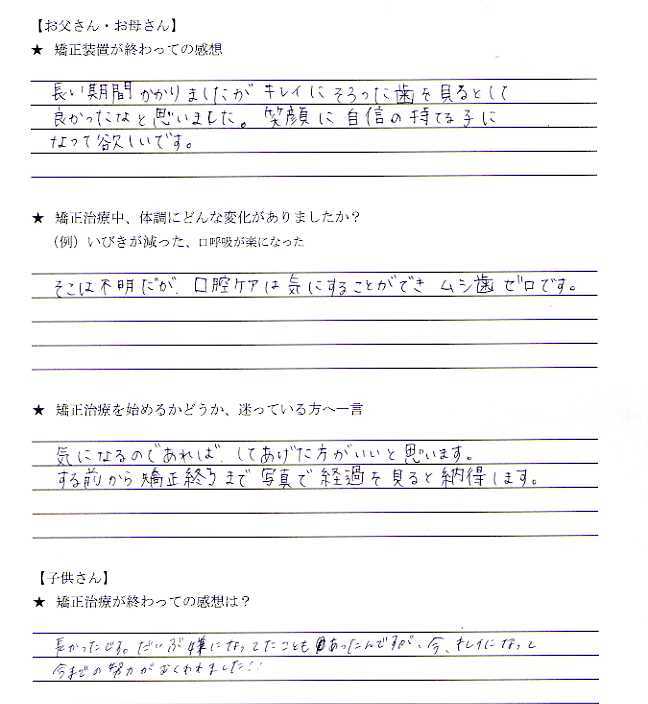 【お父さん・お母さん】
★ 矯正装置が終わっての感想
長い期間かかりましたが キレイにそろった歯を見るとして
良かったなと思いました。笑顔に自信の持てる子に
なって欲しいです。
★ 矯正治療中、体調にどんな変化がありましたか？
（例）いびきが減った、口呼吸が楽になった
そこは不明だが、口腔ケアは気にすることができ ムシ歯ゼロです。
★ 矯正治療を始めるかどうか、迷っている方へ一言
気になるのであれば、してあげた方がいいと思います。
する前から矯正終了まで写真で経過を見ると納得します。
【子供さん】
★ 矯正治療が終わっての感想は？
長かったです。だいぶ嫌になってたこともあったんですが、今、キレイになって
今までの努力がむくわれました!!